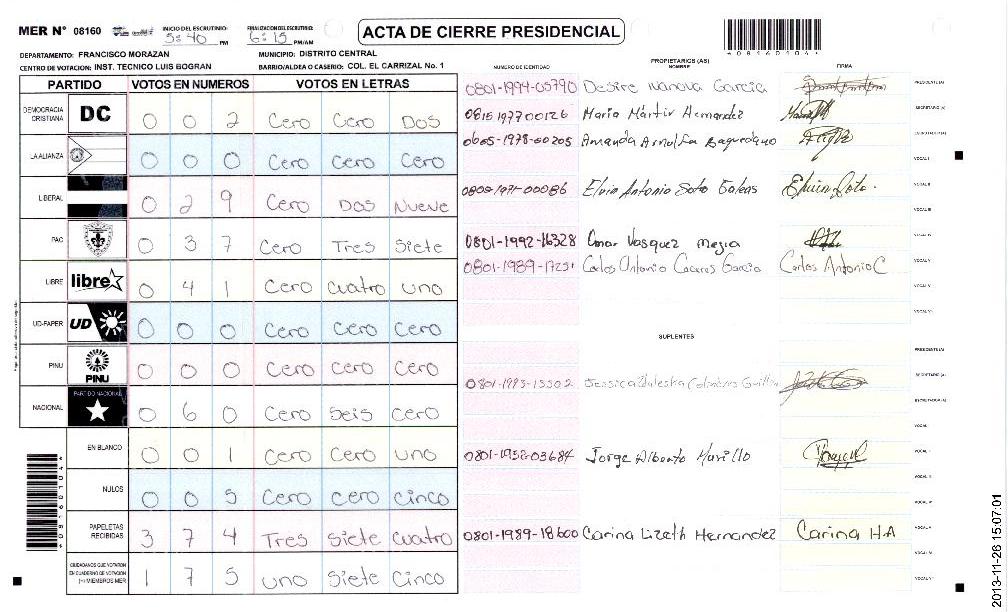 MER N° 08160 INICIO DEL ESCRUTINIO: 5:40 PM FINALIZACION DEL ESCRUTINIO: 6:15 PM/AM ACTA DE CIERRE PRESIDENCIAL
DEPARTAMENTO: FRANCISCO MORAZAN MUNICIPIO: DISTRITO CENTRAL
CENTRO DE VOTACION: INST. TECNICO LUIS BOGRAN BARRIO/ALDEA O CASERIO: COL. EL CARRIZAL No. 1
PARTIDO VOTOS EN NUMEROS VOTOS EN LETRAS
DEMOCRACIA CRISTIANA DC 0 0 2 Cero Cero Dos
LA ALIANZA 0 0 0 Cero Cero Cero
LIBERAL 0 2 9 Cero Dos Nueve
PAC 0 3 7 Cero Tres Siete
LIBRE libre 0 4 1 Cero Cuatro uno
UD-FAPER UD 0 0 0 Cero Cero Cero
PINU PINU 0 0 0 Cero Cero Cero
NACIONAL PARTIDO NACIONAL 0 6 0 Cero Seis Cero
EN BLANCO 0 0 1 Cero Cero uno
NULOS 0 0 5 Cero Cero Cinco
PAPELETAS RECIBIDAS 3 7 4 Tres Siete Cuatro
CIUDADANOS QUE VOTARON EN CUADERNO DE VOTACION (+) MIEMBROS MER 1 7 5 uno Siete Cinco
PROPIETARIOS (AS)
NUMERO DE IDENTIDAD NOMBRE FIRMA
0801-1994-05790 Desire Ivanova Garcia PRESIDENTE (A)
0815197700126 Mario Mártir Hernandez SECRETARIO (A)
1978-00205 Amanda ESCRUTADOR (A)
VOCAL I
00086 Elvin Antonio Soto Galeas Elvin Soto. VOCAL II
VOCAL III
0801-1992-16328 Omar Vasquez Mejia
0801-1989-17251 Carlos Antonio Caceres Garcia Carlos Antonio C VOCAL V
SUPLENTES
PRESIDENTE (A)
Jessica SECRETARIO (A)
ESCRUTADOR (A)
VOCAL I
0801-1952-03684 Jorge Alberto Murillo
0801-1989-18600 Carina Lizeth Hernandez Carina H.A
40816010414
2013-11-26 15:07:01